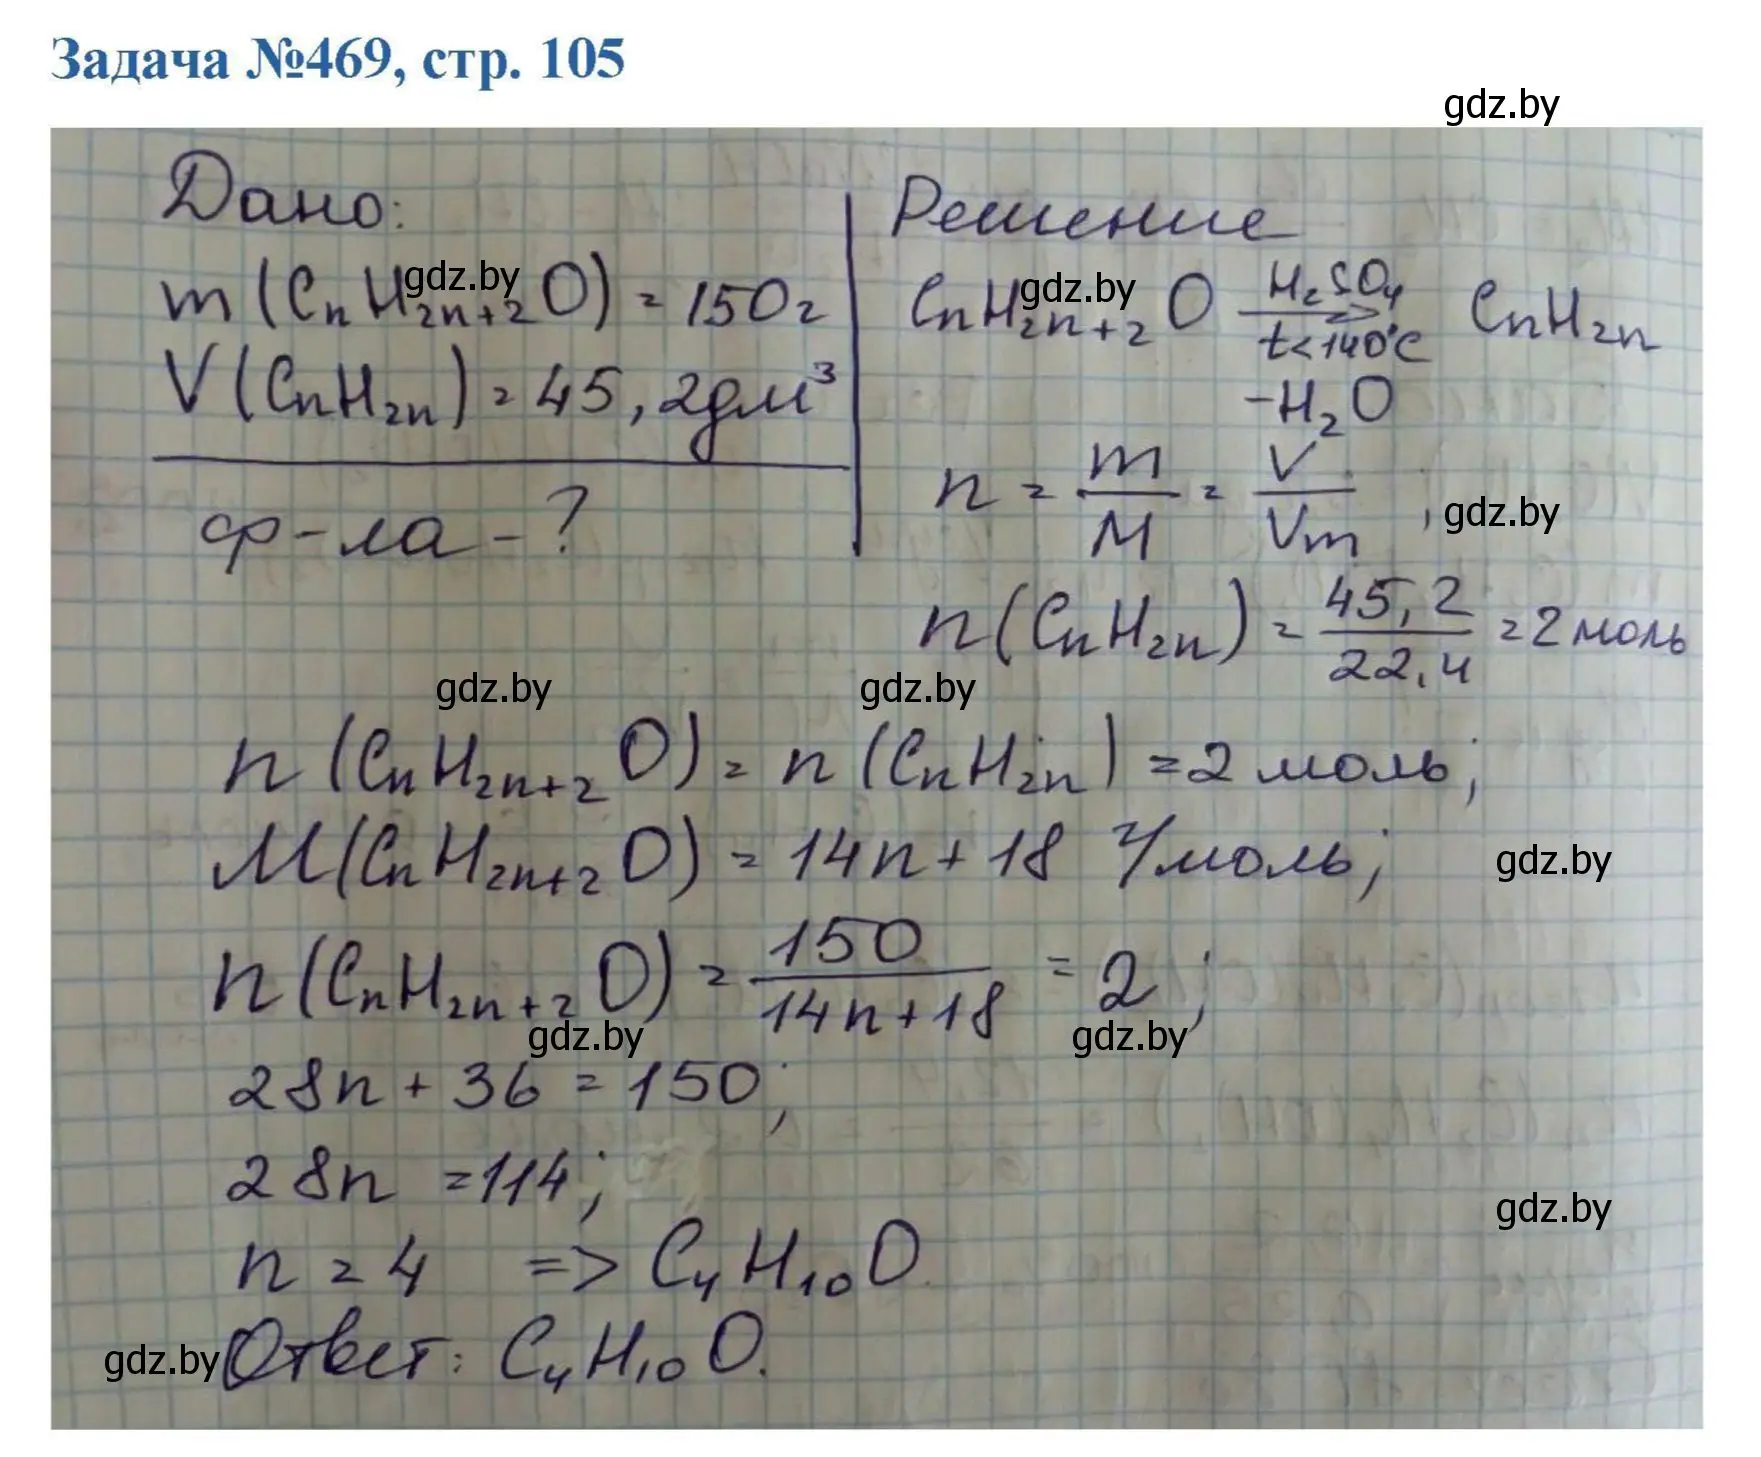 Задача №469, стр. 105
gdz.by
Дано:
m(CnH2n+2O) = 150г
gdz.by
V(CnH2n) = 45,2дм³
ф-ла - ?
Решение
CnH2n+2O H2SO4 → t<140°C CnH2n
gdz.by
-H2O
n = m/M = V/Vm ,
gdz.by
n(CnH2n) = 45,2/22,4 = 2 моль
gdz.by
gdz.by
n(CnH2n+2O) = n(CnH2n) = 2 моль;
M(CnH2n+2O) = 14n + 18 г/моль;
gdz.by
n(CnH2n+2O) = 150/14n+18 = 2;
gdz.by
gdz.by
28n + 36 = 150;
28n = 114;
gdz.by
n = 4 => C4H10O
gdz.by
Ответ: C4H10O.